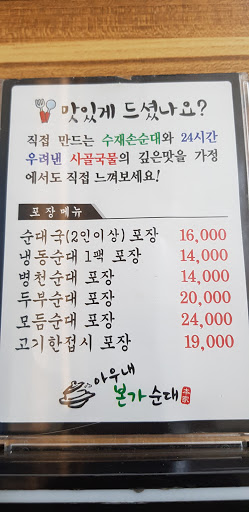 맛있게 드셨나요?
직접 만드는 수재손순대와 24시간
우려낸 사골국물의 깊은맛을 가정
에서도 직접 느껴보세요!
포장메뉴
순대국(2인이상) 포장 16,000
냉동순대 1팩 포장 14,000
병천순대 포장 14,000
두부순대 포장 20,000
모듬순대 포장 24,000
고기한접시 포장 19,000
아우내
본가순대
本家